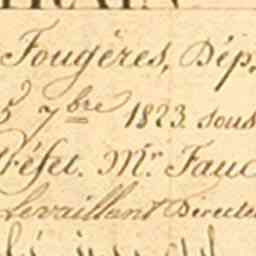 RAIN
Fougères, Dép.
5 7bre 1823. sous
Préfet. Mr. Fauc
Levaillant Directe